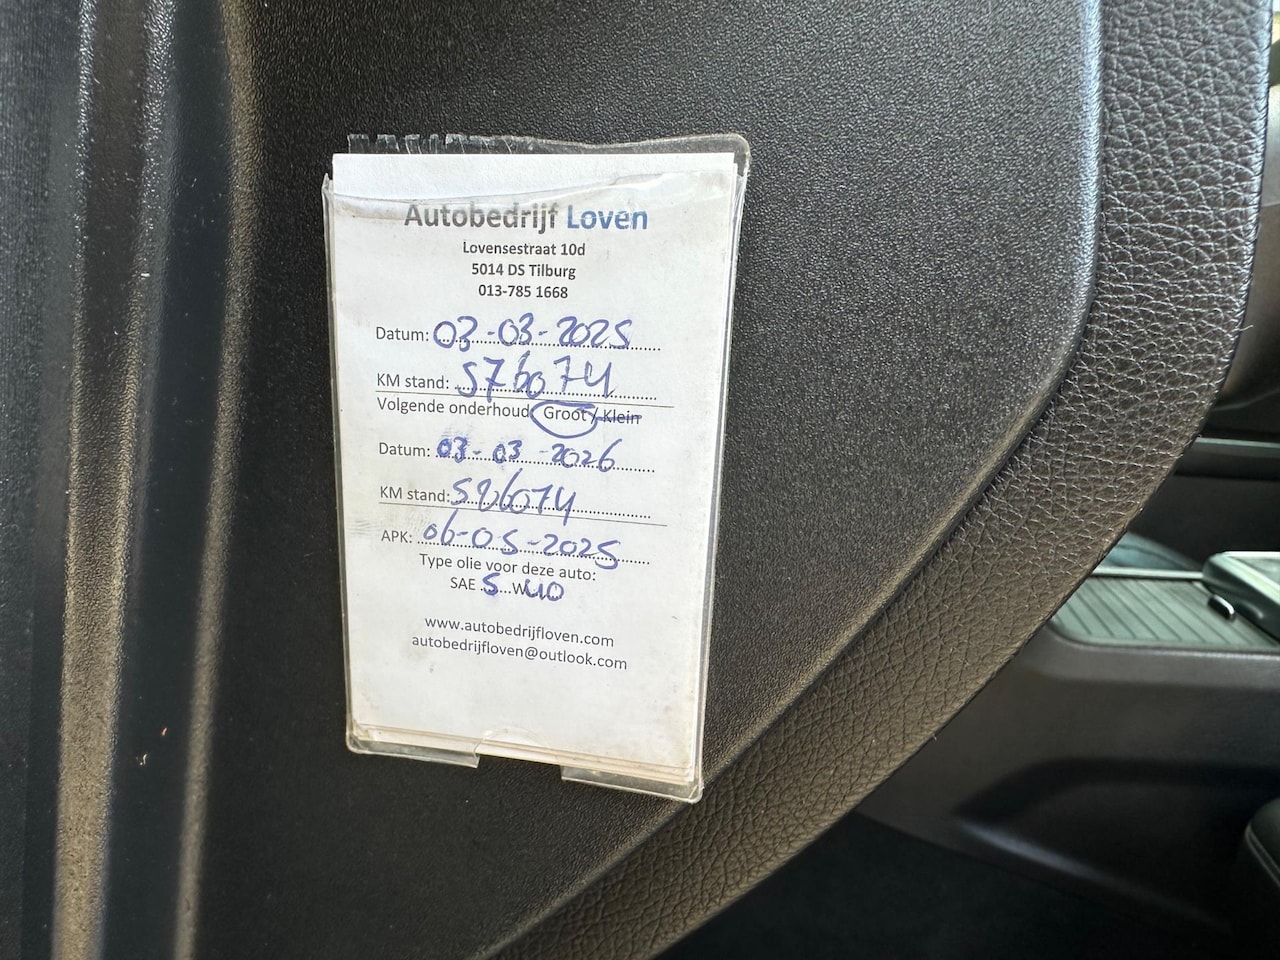 Autobedrijf Loven
Lovensestraat 10d
5014 DS Tilburg
013-785 1668
Datum: 03-03-2025
KM stand: 576074
Volgende onderhoud: Groot / Klein
Datum: 03-03-2026
KM stand: 596074
APK: 06-05-2025
Type olie voor deze auto:
SAE 5 W 40
www.autobedrijfloven.com
autobedrijfloven@outlook.com